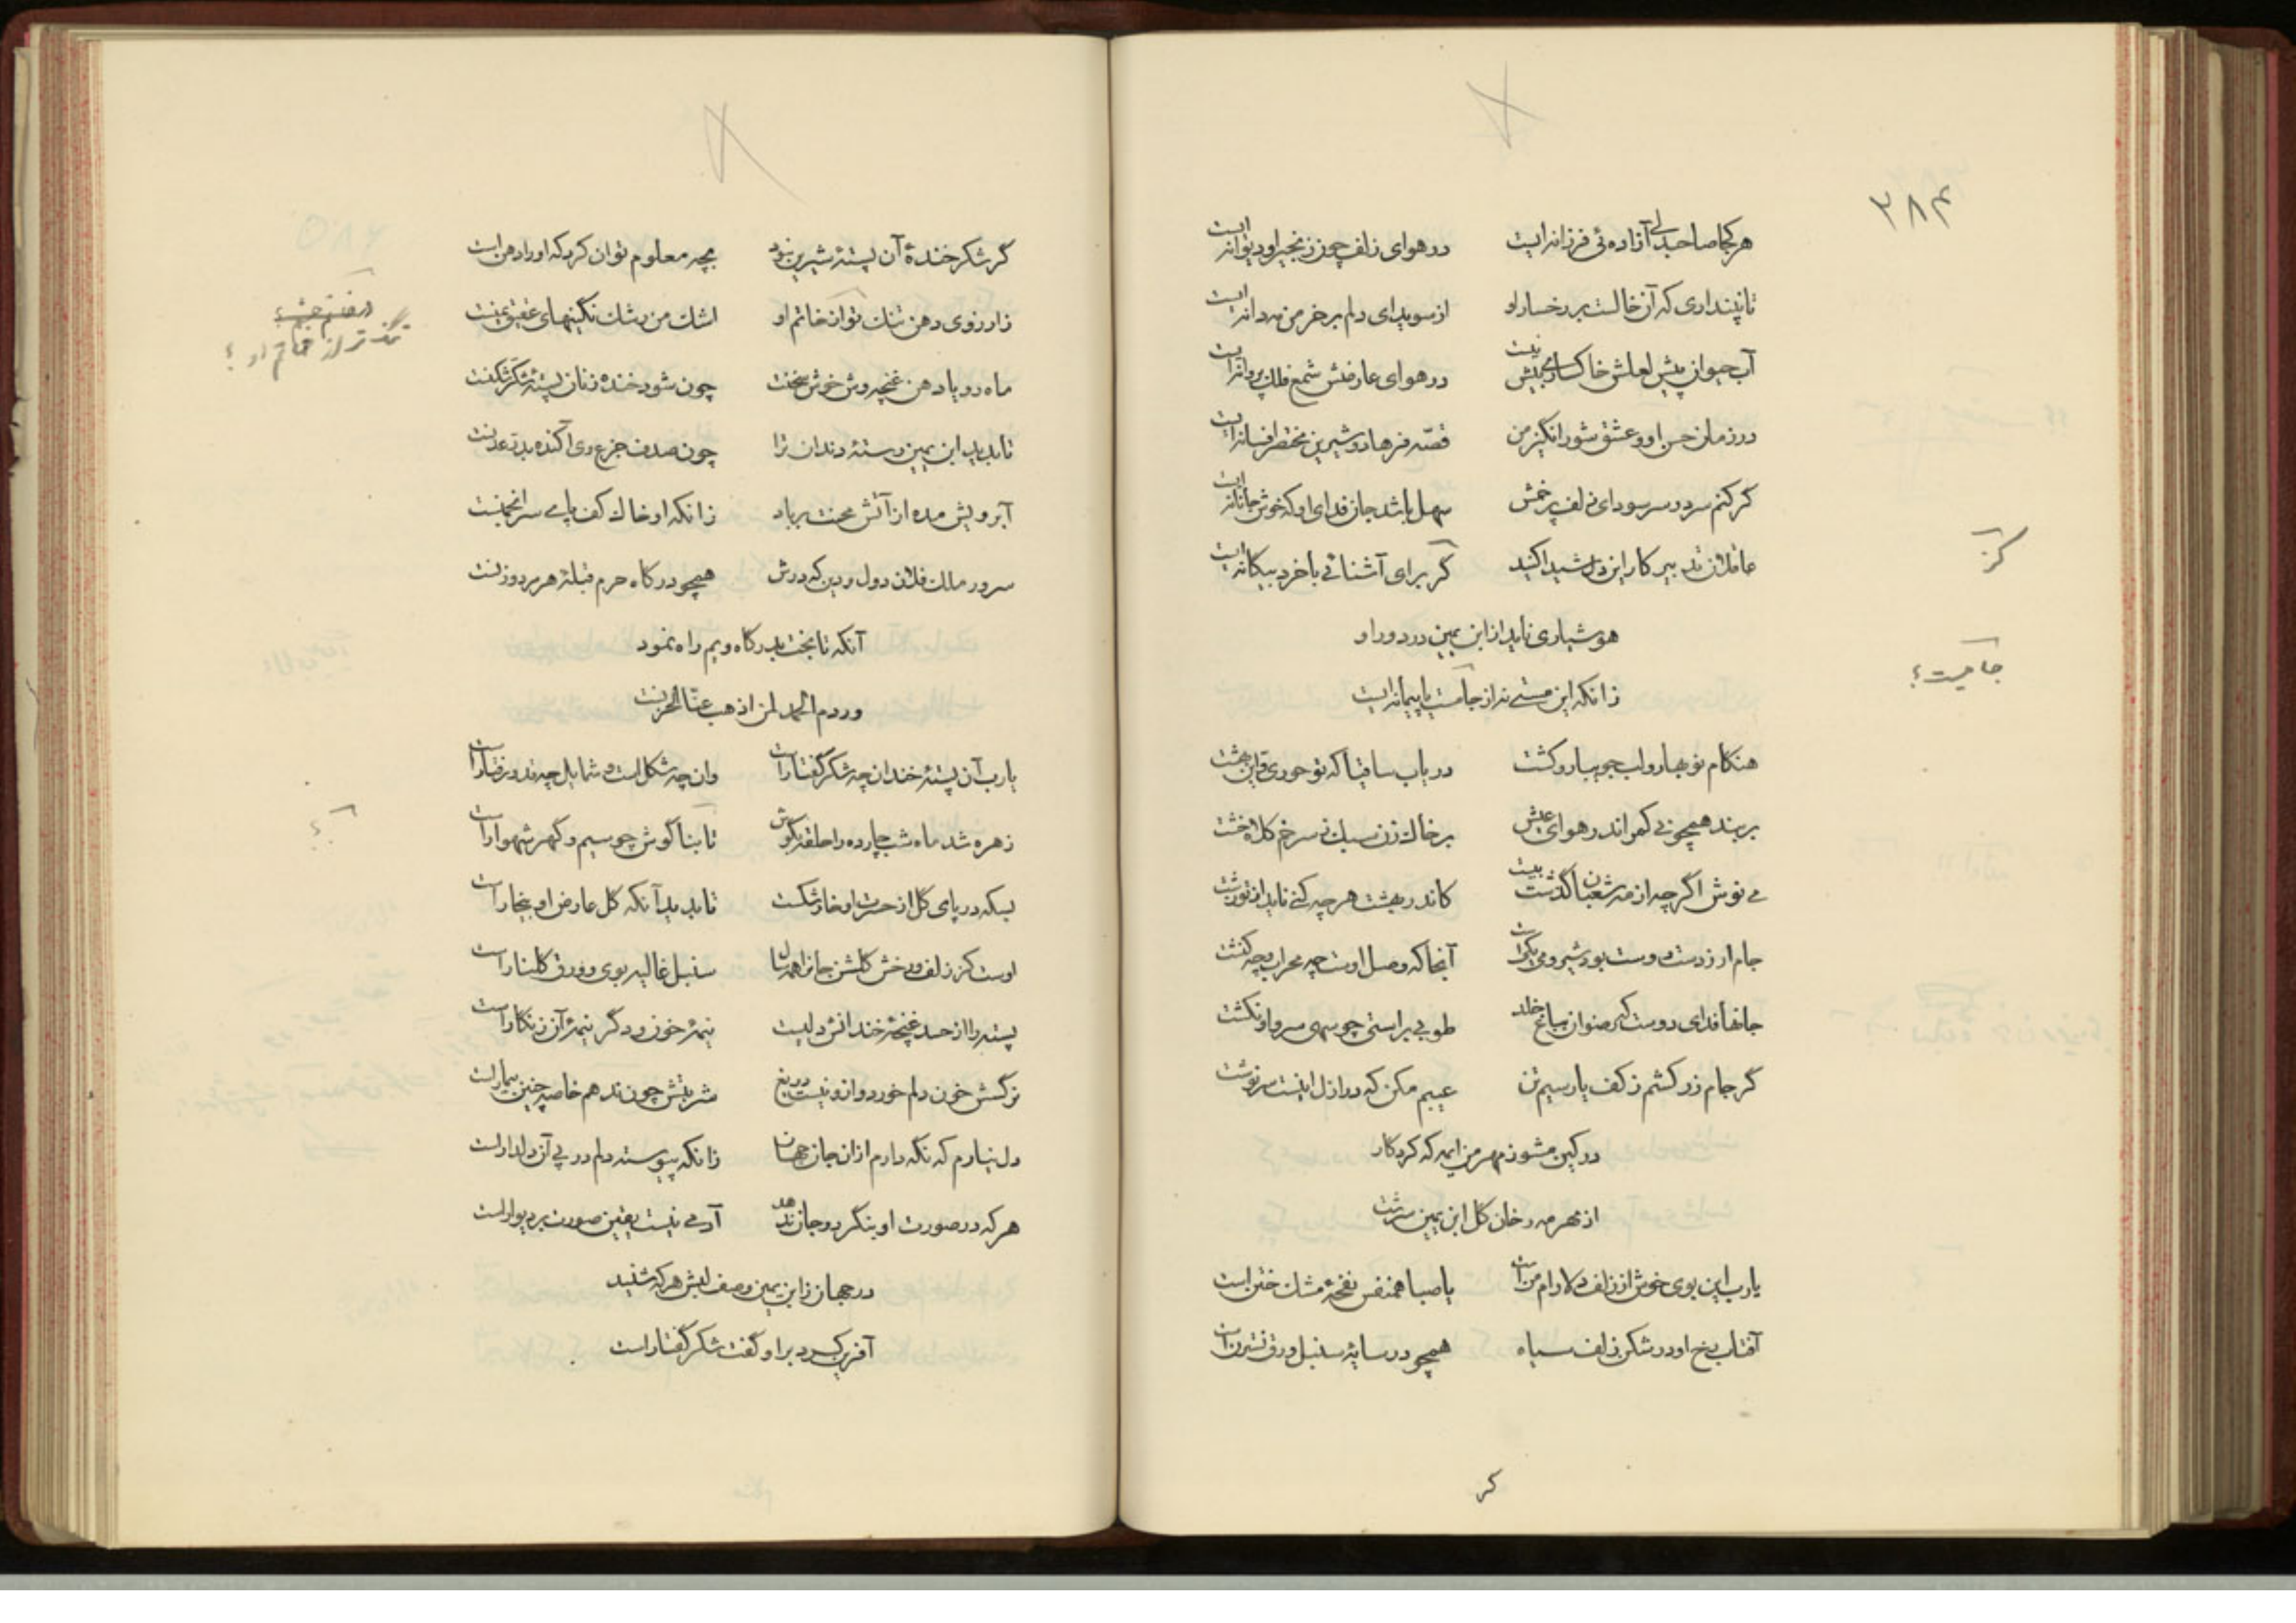 ۳۸۴
هر کجا صاحبدلی آزاده‌ئی فرزانه ایست در هوای زلف چون زنجیر او دیوانه ایست
تا نپنداری که آن خالست بر رخسار او از سویدای دلم بر خرمن مه دانه ایست
آب حیوان پیش لعلش خاکساری بیش نیست در هوای عارضش شمع فلک پروانه ایست
در زمان حسن او و عشق شورانگیز من قصّه فرهاد و شیرین مختصر افسانه ایست
گر کنم سر در سر سودای زلف پر خمش سهل باشد جان فدای او که خوش جانانه ایست
عاقلان تدبیر کار این دل شیدا کنید گر برای آشنائی با خرد بیگانه ایست
کز
هوشیاری ناید از ابن یمین در دور او
زانکه این مستی نه از جامست یا پیمانه ایست
جامیست؟
هنگام نوبهار و لب جویبار و کشت دریاب ساقیا که تو حوری و این بهشت
بربند همچو نی کمر اندر هوای عیش بر خاک زن سبک ز سر خم کلاه خشت
می نوش اگر چه از مه شعبان گذشت بیست کاندر بهشت هر چه کنی ناید از تو زشت
جام ار ز دست دوست بود شیر و می یکیست آنجا که وصل اوست چه محراب و چه کنشت
جانها فدای دوست که رضوان بباغ خلد طوبی براستی چو سهی سرو او نکشت
گر جام زر کشم ز کف یار سیم تن عیبم مکن که در ازل اینست سرنوشت
در کین مشو ز مهر من ایمه که کردگار
از مهر مه رخان گل ابن یمین سرشت
یا رب این بوی خوش از زلف دلارام منست یا صبا همنفس نفحهٔ مشک ختن است
آفتاب رخ او در شکن زلف سیاه همچو در سایهٔ سنبل ورق نسترن است
کر
گر شکر خندهٔ آن پستهٔ شیرین نبود بچه معلوم توان کرد که او را دهن است
زارزوی دهن تنک تو ان خاتم او اشک من رشک نگینهای عقیق یمنست
تنگ تر از خاتم او؟
ماه رو یا دهن غنچه وش خوش سخنت چون شود خنده زنان پستهٔ شکر شکنست
تا بدید ابن یمین رستهٔ دندان ترا چون صدف جزع وی آکنده بدرّ عدنست
آبرویش مده از آتش محنت بر باد زانکه او خاک کف پای سر انجمنست
سرور ملک فلان دول و دین که درش همچو درگاه حرم قبلهٔ هر مرد و زنست
آنکه تا بخت بدرگاه ویم راه نمود
وردم الحمد لمن اذهب عنّا الحزنست
یا رب آن پستهٔ خندان چه شکر گفتارست وان چه شکل است و شمایل چه قد و رفتارست
زهره شد ماه شب چارده را حلقه بگوش تا بناگوش چو سیم و گهر شهوارست
بسکه در پای گل از حسرت او خار شکست تا بدید آنکه گل عارض او بیخارست
اوست کز زلف و رخش گلشن جان اهمه سال سنبل غالیه بوی و ورق گلنارست
پسته را از حسد غنچهٔ خندانش دلیست نیمهٔ خون و دگر نیمهٔ آن زنگارست
نرگسش خون دلم خورد و ازو نیست دریغ شربتش چون ندهم خاصه چنین بیمارست
دل نیارم که نگه دارم از ان جان جهان زانکه پیوسته دلم در پی آن دلدارست
هر که در صورت او بنگرد و جان ندهد آدمی نیست یقین صورت بر دیوارست
در جهان ز ابن یمین وصف لبش هر که شنید
آفرین کرد بر او گفت شکر گفتار است